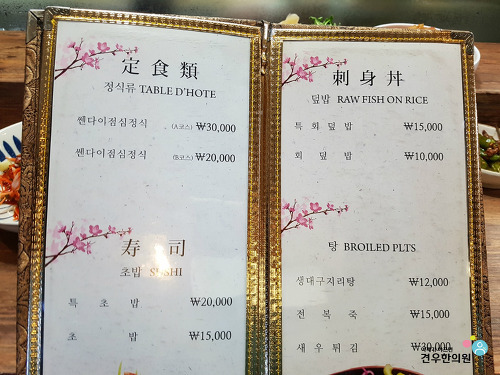 定食類
정식류 TABLE D'HOTE
쎈다이점심정식 (A코스) ₩30,000
쎈다이점심정식 (B코스) ₩20,000
寿司
초밥 SUSHI
특초밥 ₩20,000
초밥 ₩15,000
刺身丼
덮밥 RAW FISH ON RICE
특회덮밥 ₩15,000
회덮밥 ₩10,000
탕 BROILED PLTS
생대구지리탕 ₩12,000
전복죽 ₩15,000
새우튀김 ₩30,000
견우한의원